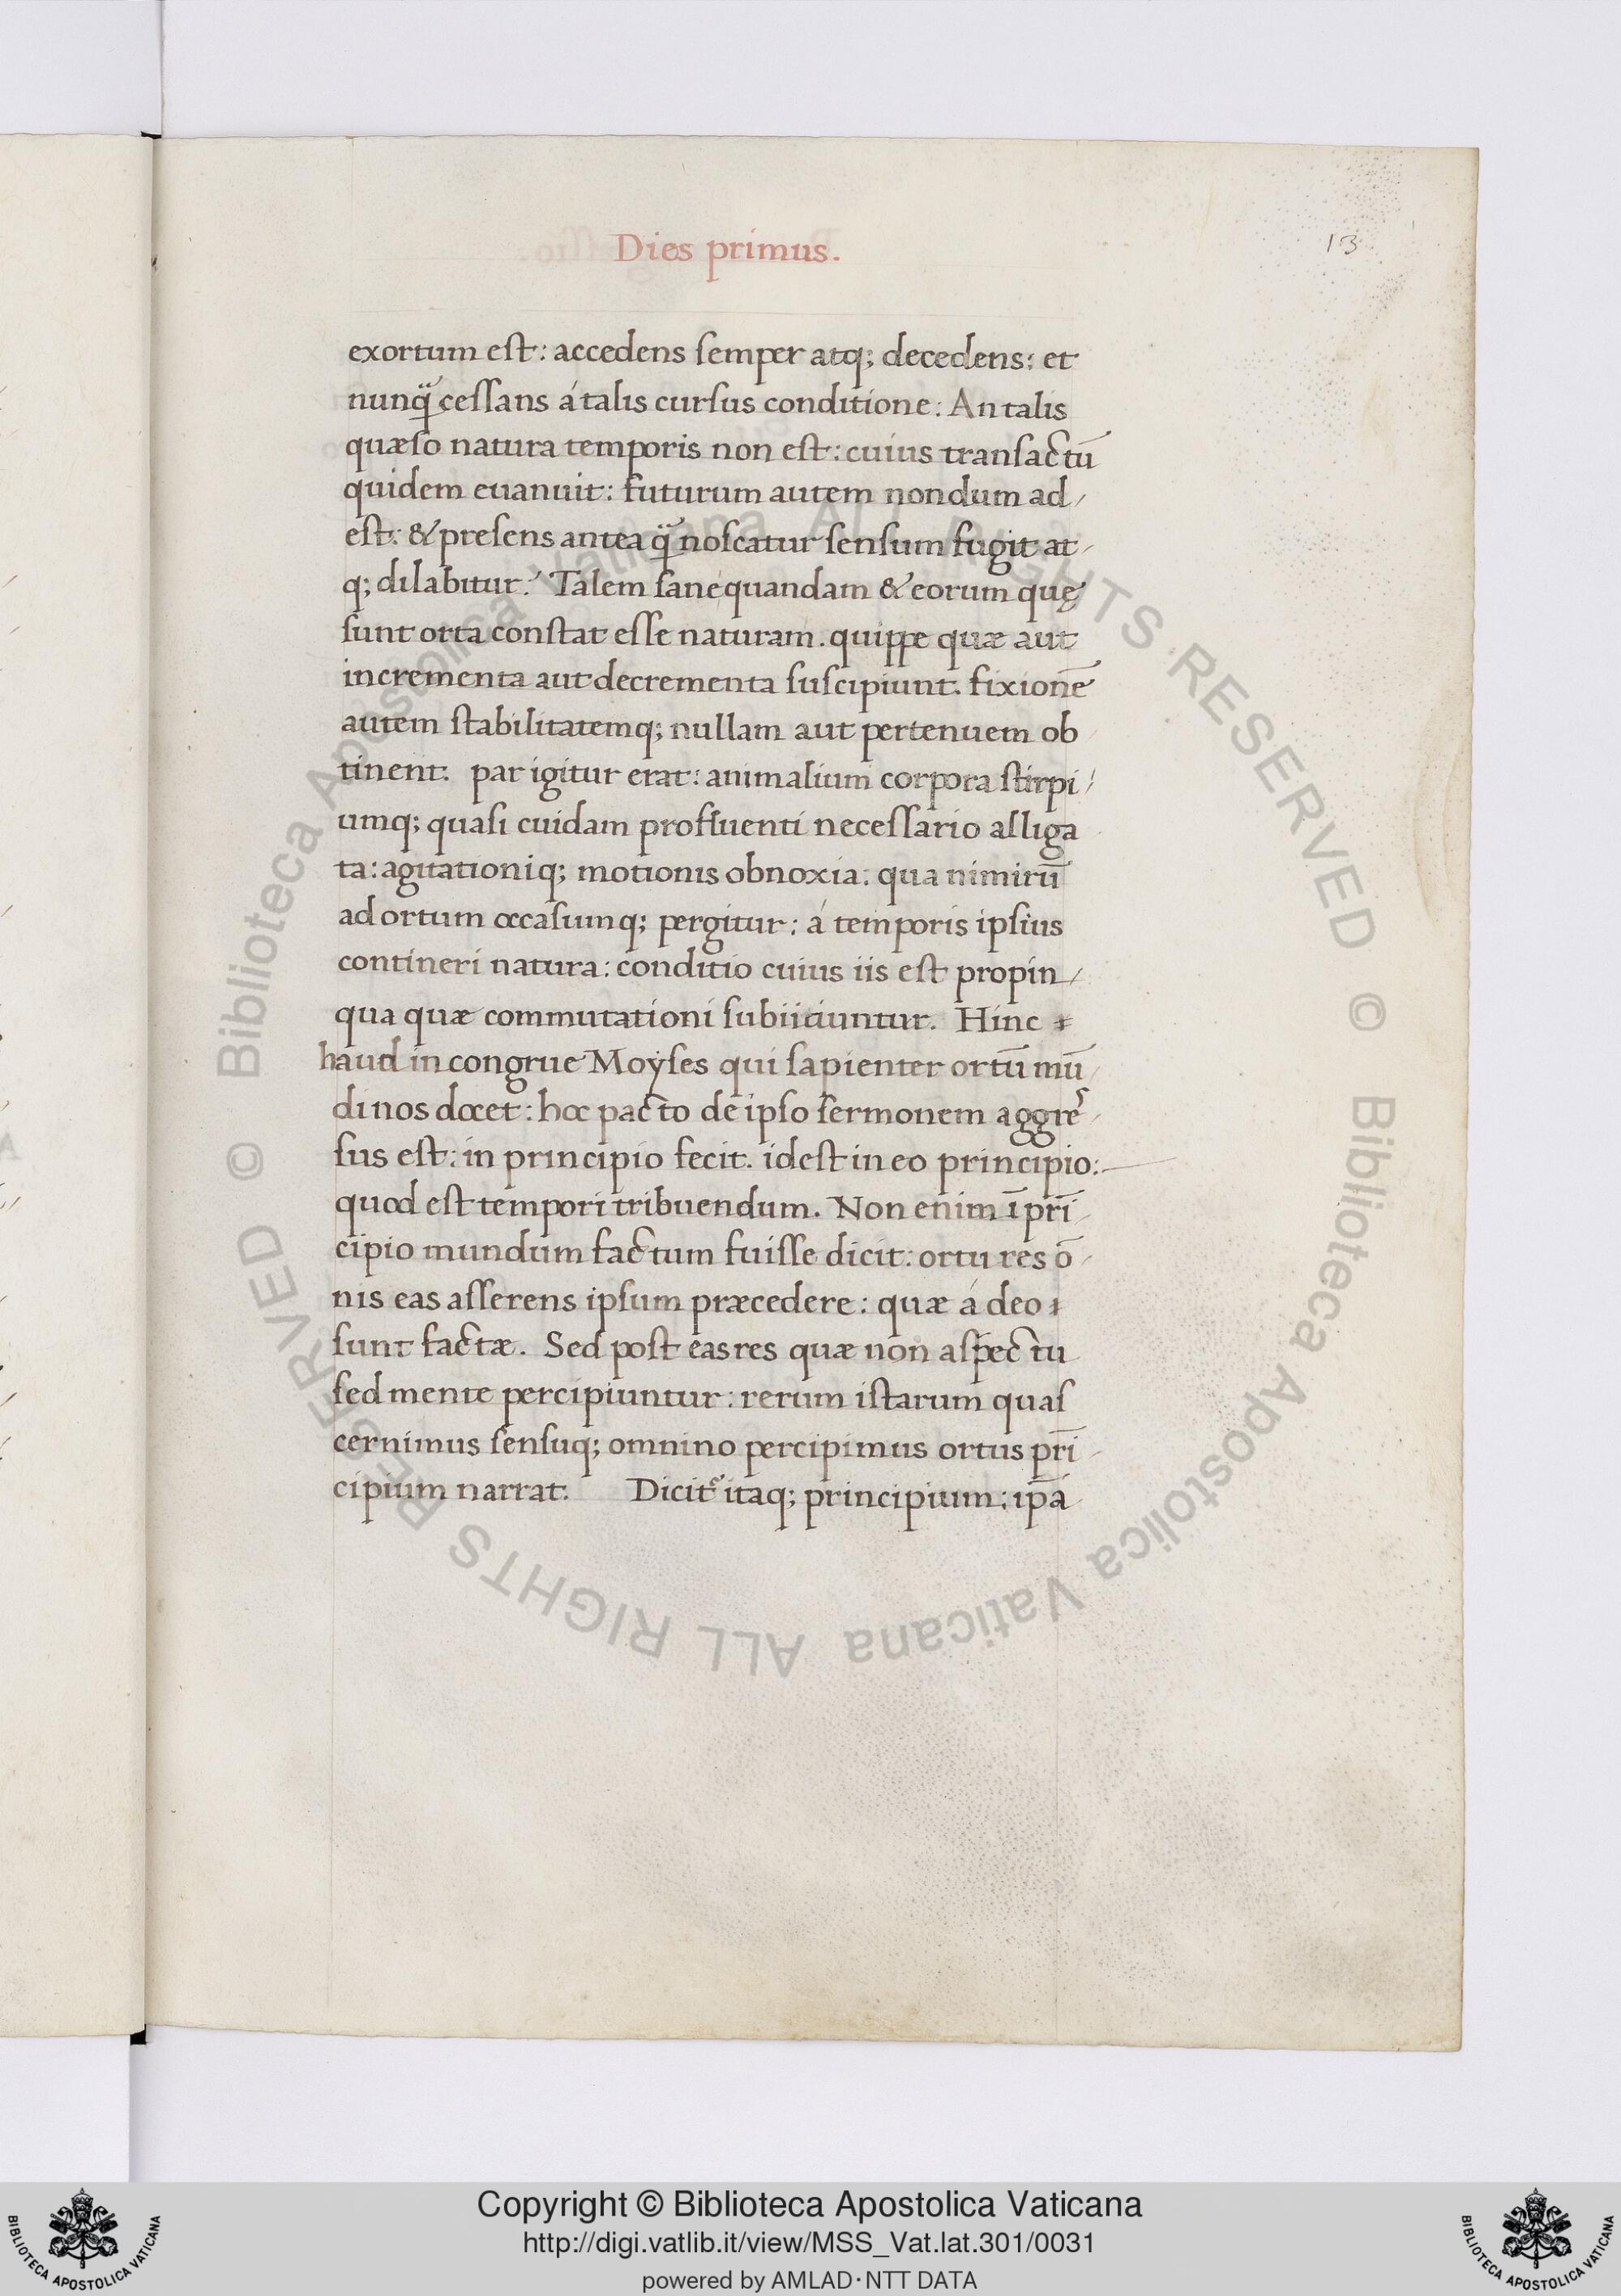 Dies primus.
13
exortum eſt: accedens ſemper atq; decedens: et
nunq̃ ceſſans á talis curſus conditione: An talis
quæſo natura temporis non eſt: cuius tranſactū
quidem euanuit: futurum autem nondum ad-
eſt: & preſens antea q̃ noſcatur ſenſum fugit at-
q; dilabitur? Talem ſane quandam & eorum quę
ſunt orta conſtat eſſe naturam. quippe quæ aut
incrementa aut decrementa ſuſcipiunt. fixionē
autem ſtabilitatemq; nullam aut pertenuem ob
tinent. par igitur erat: animalium corpora ſtirpi-
umq; quaſi cuidam profluenti neceſſario alliga
ta: agitationiq; motionis obnoxia: qua nimirū
ad ortum occaſumq; pergitur: á temporis ipſius
contineri natura: conditio cuius iis eſt propin-
qua quæ commutationi ſubiiciuntur. Hinc
haud incongrue Moÿſes qui ſapienter ortū mū-
di nos docet: hoc pacto de ipſo ſermonem aggreſ-
ſus eſt: in principio fecit. ideſt in eo principio:
quod eſt tempori tribuendum. Non enim ī prī-
cipio mundum factum fuiſſe dicit: ortu res ō-
nis eas aſſerens ipſum præcedere: quæ á deo
ſunt factæ. Sed poſt eas res quæ non aſpectu
ſed mente percipiuntur: rerum iſtarum quaſ
cernimus ſenſuq; omnino percipimus ortus prī-
cipium narrat. Dicit᷑ itaq; principium: ip̄a
© Biblioteca Apostolica Vaticana ALL RIGHTS RESERVED © Biblioteca Apostolica Vaticana ALL RIGHTS RESERVED
Copyright © Biblioteca Apostolica Vaticana
http://digi.vatlib.it/view/MSS_Vat.lat.301/0031
powered by AMLAD·NTT DATA
BIBLIOTECA APOSTOLICA VATICANA
BIBLIOTECA APOSTOLICA VATICANA